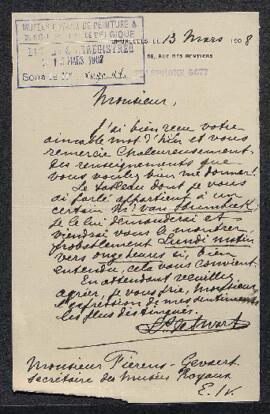 MUSÉES ROYAUX DE PEINTURE &
BRUXELLES, LE 13 Mars 1908
58, RUE DES MENUISIERS
13 MARS 1908
TÉLÉPHONE 6677
Monsieur,
J'ai bien reçu votre
aimable mot d'hier et vous
remercie chaleureusement
des renseignements que
vous voulez bien me donner!
Le tableau dont je vous
ai parlé appartient à un
certain
je le lui demanderai et
viendrai vous le montrer
probablement Lundi matin
vers onze heures si, bien
entendu, cela vous convient.
En attendant veuillez
agréer, je vous prie, Monsieur
l'expression de mes sentiments
les plus distingués.
Monsieur Fierens-Gevaert
secrétaire des Musées Royaux
E. V.